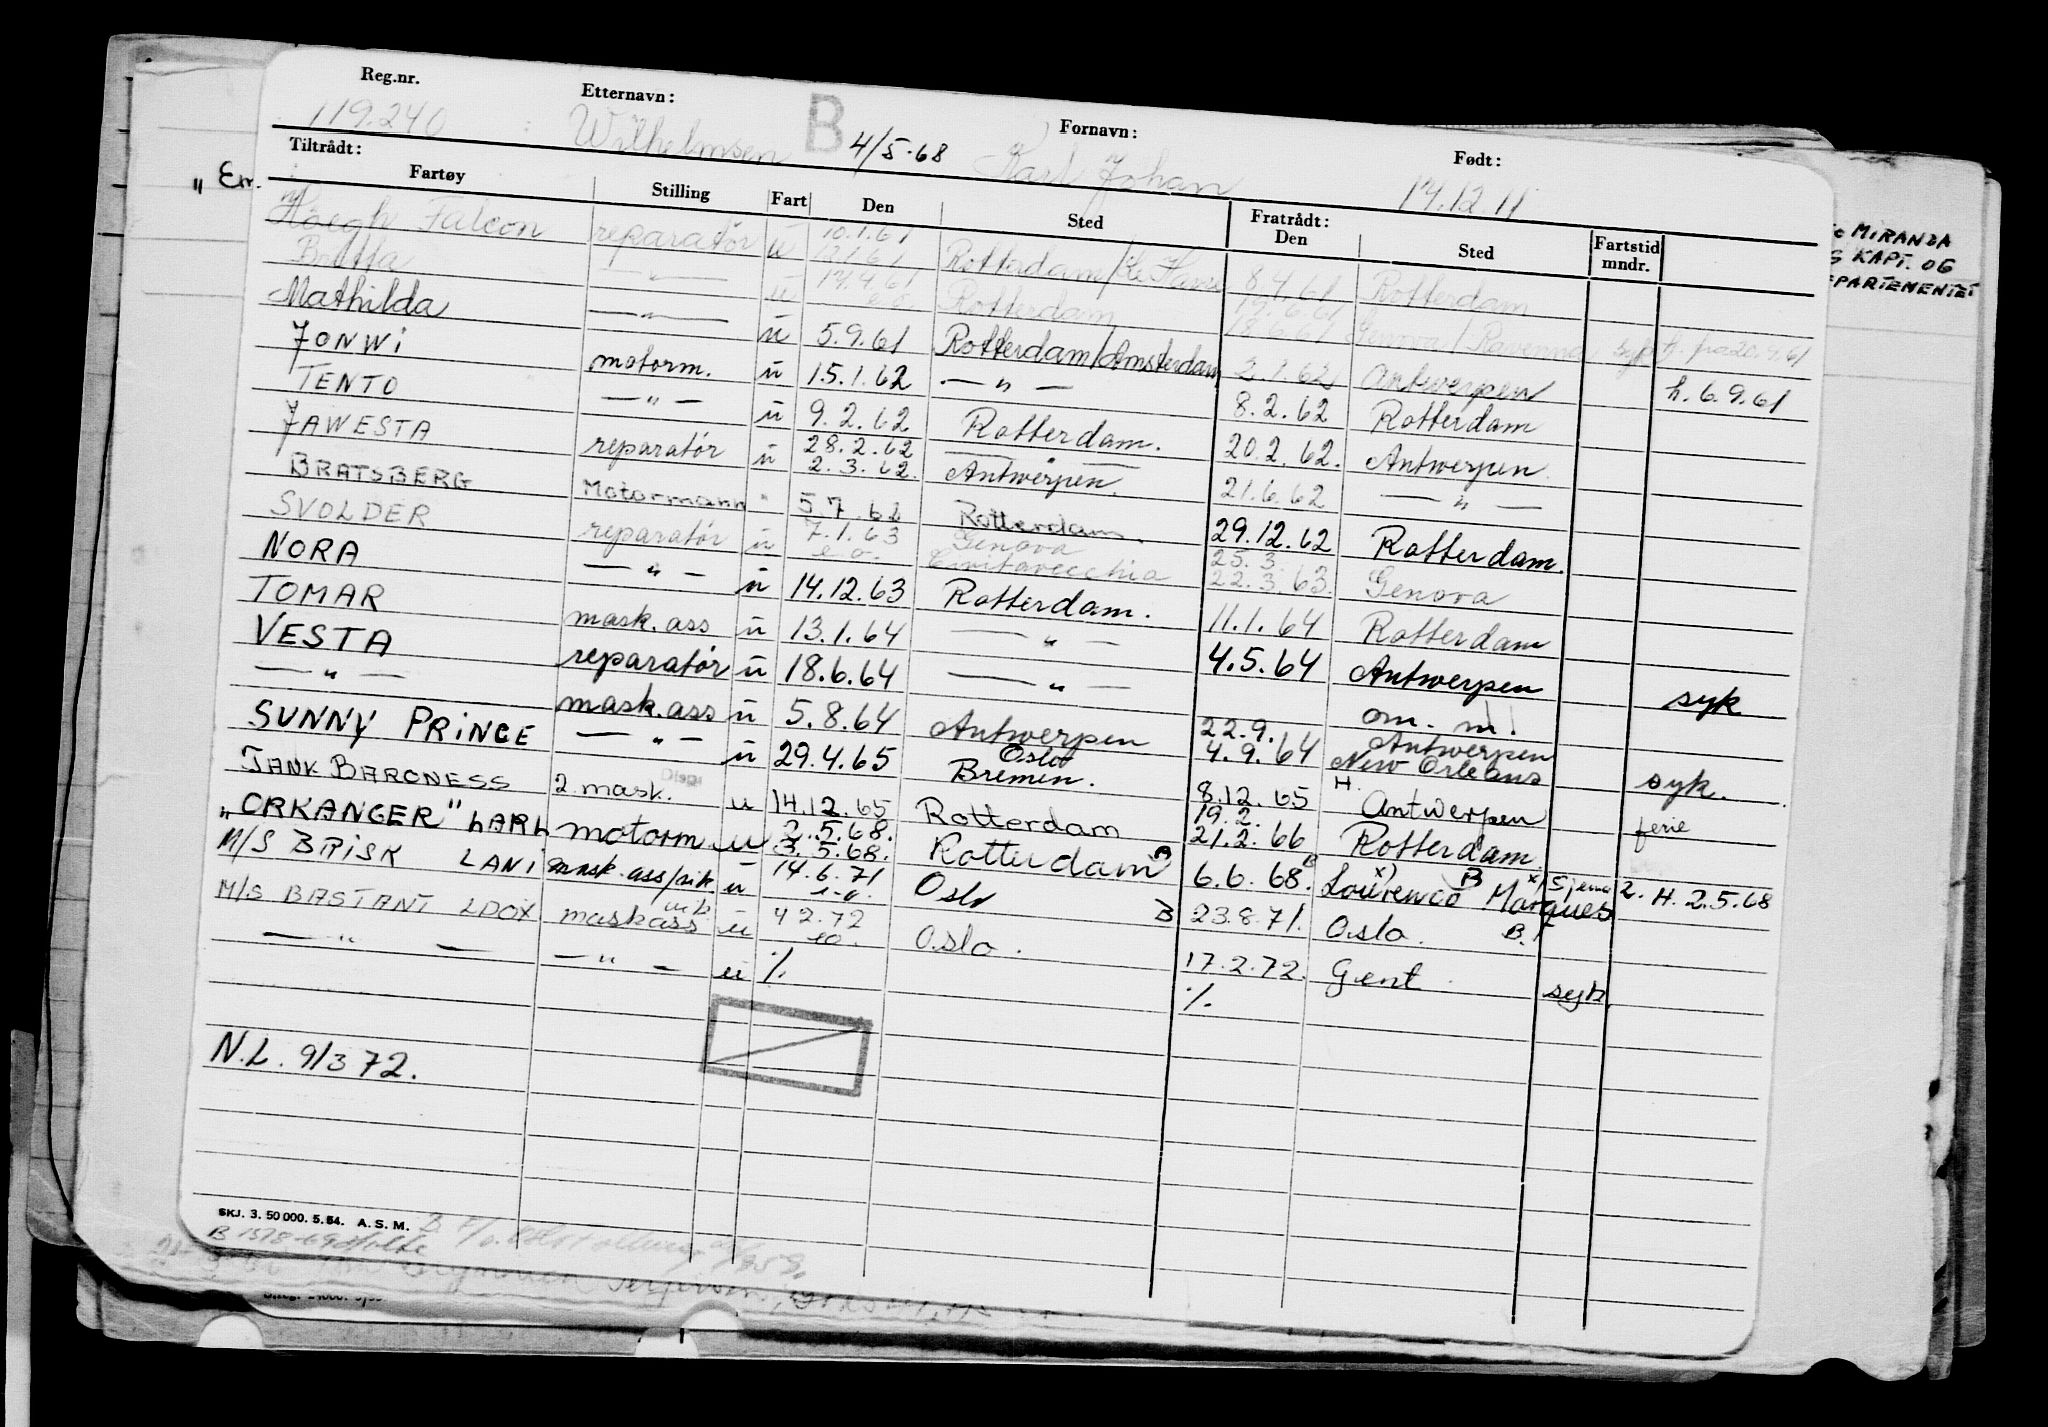 Reg.nr. Etternavn: B Fornavn: Født:
119.240 Wilhelmsen 4/5-68 Karl Johan 17.12.11
Tiltrådt: Fratrådt:
Fartøy Stilling Fart Den Sted Den Sted Fartstid mndr.
Høegh Falcon reparatør u 10.1.61 Rotterdam 8.4.61 Rotterdam
— " — u 17.4.61 e.o. Rotterdam 18.6.61 Genova / Ravenna
Mathilda — " — u 5.9.61 Rotterdam/Amsterdam 2.1.62 Antwerpen h. 6.9.61
JONWI motorm. u 15.1.62 — " — 8.2.62 Rotterdam
TENTO — " — u 9.2.62 Rotterdam. 20.2.62. Antwerpen
JAWESTA reparatør u 28.2.62 2.3.62. Antwerpen. 21.6.62 — " —
BRATSBERG Motormann " 5.7.62 Rotterdam. 29.12.62 Rotterdam.
SVOLDER reparatør u 7.1.63 e.o. Genova Civitavecchia 25.3. 22.3.63. Genova
NORA — " — u 14.12.63 Rotterdam. 11.1.64 Rotterdam
TOMAR mask.ass u 13.1.64 — " — 4.5.64 Antwerpen syk
VESTA reparatør u 18.6.64 — " — om. m!
— " — mask.ass u 5.8.64 Antwerpen 22.9. 4.9.64 Antwerpen New Orleans syk.
SUNNY PRINCE — " — u 29.4.65 Oslo Bremen. 8.12.65 H. Antwerpen ferie
TANK BARONESS 2 mask. Disp. u 14.12.65 Rotterdam 19.2. 21.2.66 Rotterdam.
"ORKANGER" LARL motorm u 2.5.68. 3.5.68. Rotterdam B 6.6.68. B Lourenco B Marques 2. H. 2.5.68
M/S BRISK LANI mask.ass/ u 14.6.71 e.o. Oslo B 23.8.71. Oslo. B.T
M/S BASTANT LDOX maskass u 4 2.72 eo. Oslo. 17.2.72. Gent syk.
— " — — " — u % %
N.L. 9/3 72.
SKJ. 3. 50 000. 5. 54. A. S. M.
"Er.
MIRANDA
KAPT. OG
EPARTEMENTET